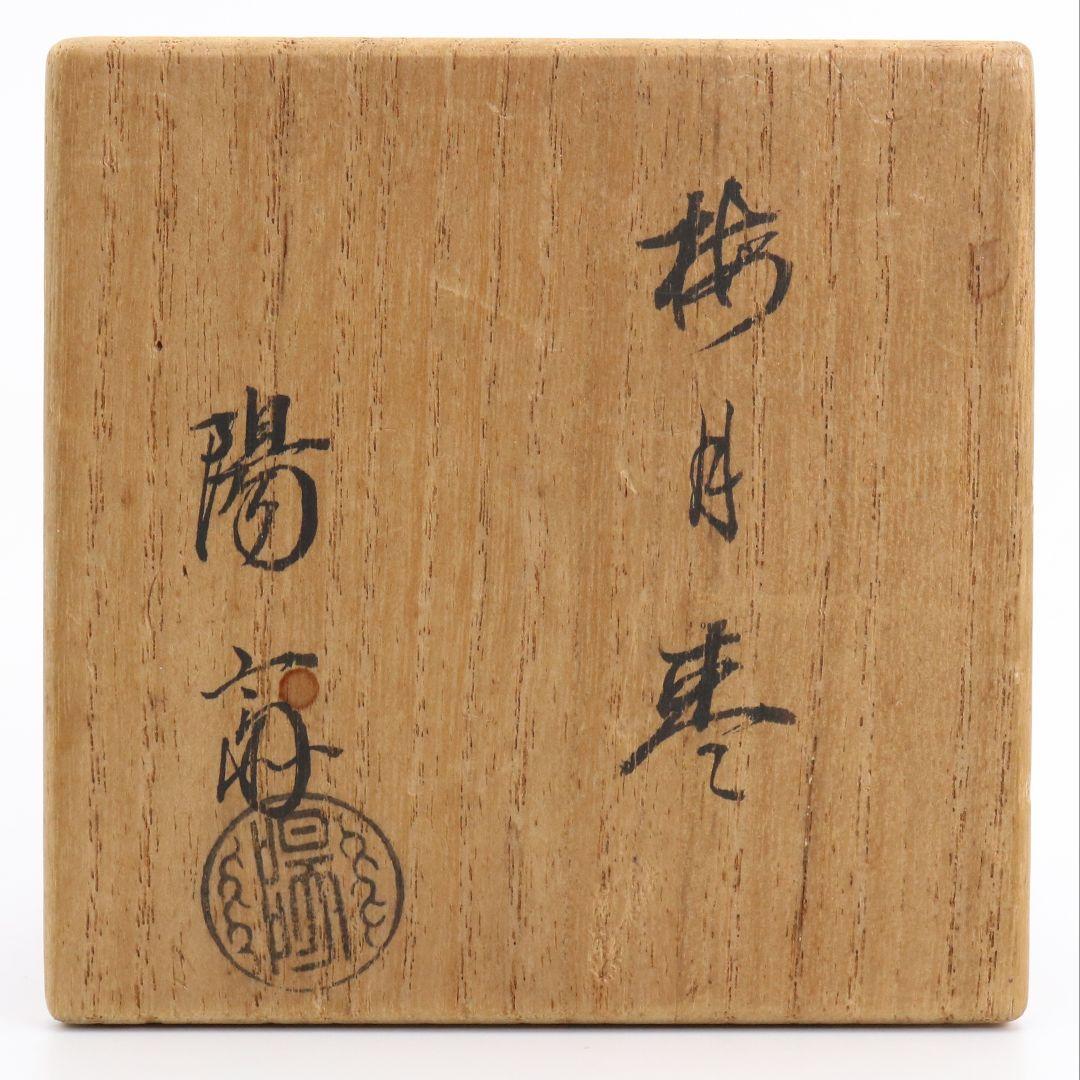 梅月棗
陽斎